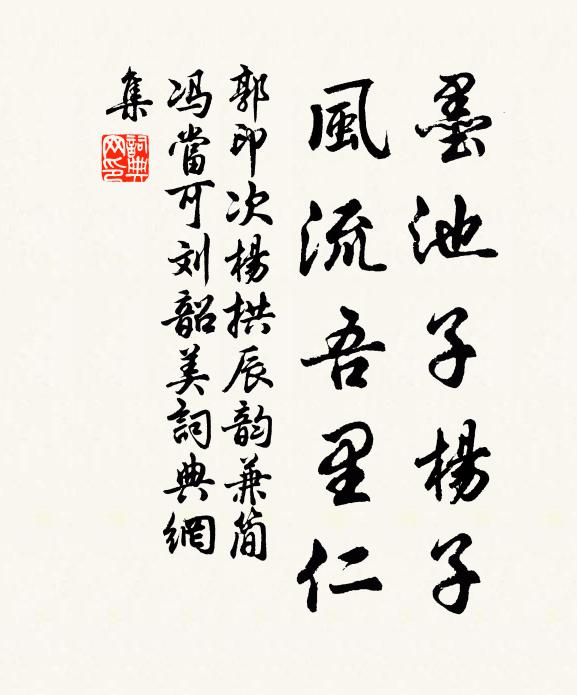 墨池子楊子
風流吾里仁
郭印次楊拱辰韵兼简
冯當可刘韶美詞典網
集
詞典网印